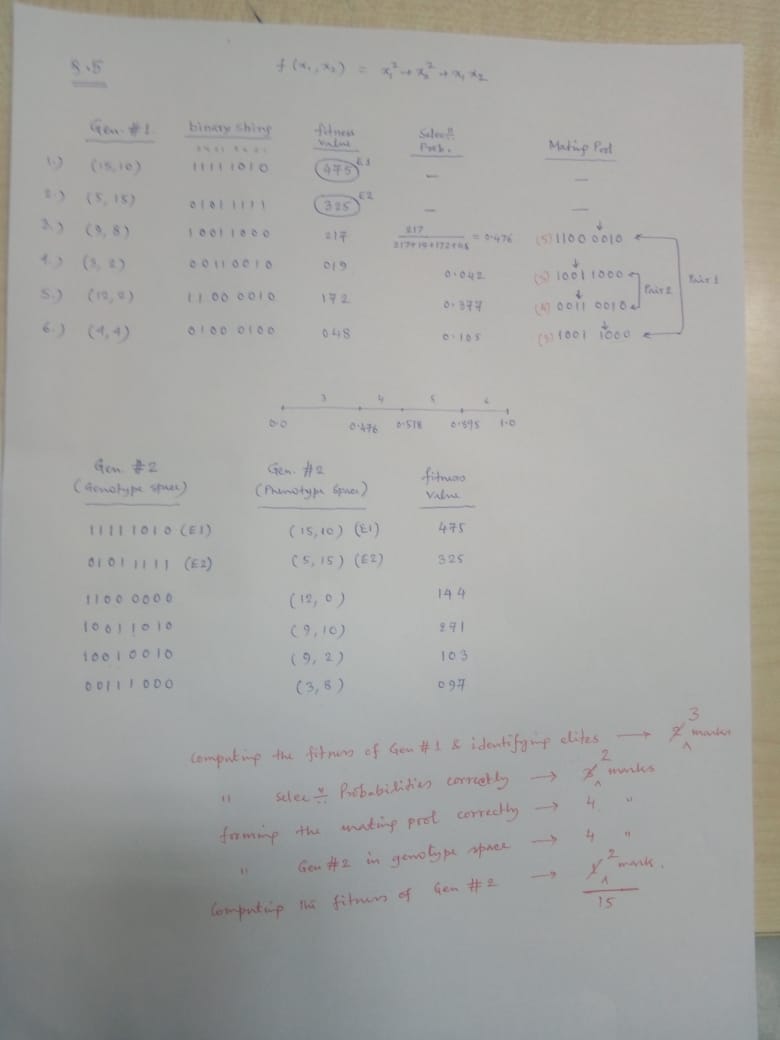 8.5 f(x₁, x₂) = x₁² + x₂² + x₁ x₂
Gen. #1 binary string fitness value Selecⁿ Prob. Mating Pool
1.) (15,10) 11111010 475 E1 — —
2.) (5, 15) 01011111 325 E2 — —
3.) (9, 8) 10011000 217 217/217+19+172+48 = 0.476 (5) 1100 0010
4.) (3, 2) 00110010 019 0.042 (3) 1001 1000
5.) (12, 2) 1100 0010 172 0.377 (4) 0011 0010
6.) (4, 4) 0100 0100 048 0.105 (3) 1001 1000
Pair 2 Pair 1
3 4 5 6
0.0 0.476 0.518 0.895 1.0
Gen. #2 Gen. #2 fitness
(Genotype space) (Phenotype space) value
11111010 (E1) (15,10) (E1) 475
01011111 (E2) (5, 15) (E2) 325
1100 0000 (12, 0) 144
10011010 (9, 10) 271
10010010 (9, 2) 103
00111000 (3, 8) 097
Computing the fitness of Gen #1 & identifying elites → 3 marks
" Selecⁿ Probabilities correctly → 2 marks
forming the mating pool correctly → 4 "
" Gen #2 in genotype space → 4 "
Computing the fitness of Gen #2 → 2 mark.
15